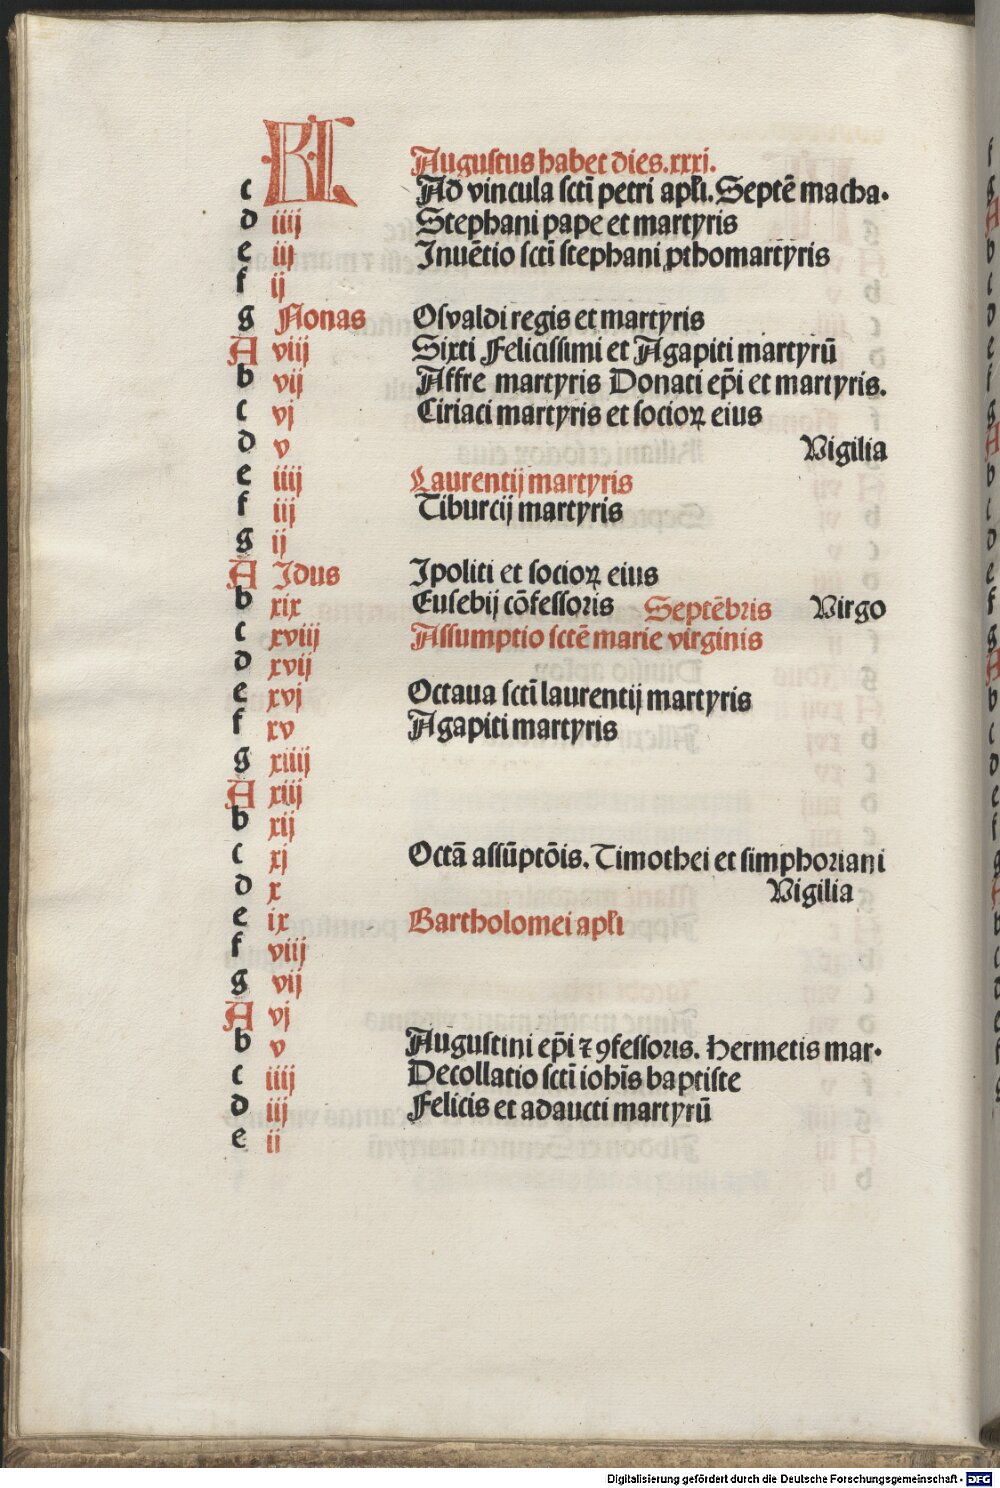 KL Augustus habet dies.xxxi.
c Ad vincula sctī petri apłi. Septē macha.
d iiij Stephani pape et martyris
e iij Inuētio sctī stephani ꝓthomartyris
f ij
g Nonas Osvaldi regis et martyris
A viij Sixti Felicissimi et Agapiti martyrū
b vij Affre martyris Donati ep̄i et martyris.
c vj Ciriaci martyris et socioꝝ eius
d v Vigilia
e iiij Laurentij martyris
f iij Tiburcij martyris
g ij
A Idus Ipoliti et socioꝝ eius
b xix Eusebij cōfessoris Septēbris Virgo
c xviij Assumptio sctē marie virginis
d xvij
e xvj Octaua sctī laurentij martyris
f xv Agapiti martyris
g xiiij
A xiij
b xij
c xj Octā assūptōis. Timothei et simphoriani
d x Vigilia
e ix Bartholomei apłi
f viij
g vij
A vj
b v Augustini ep̄i ⁊ ꝯfessoris. Hermetis mar.
c iiij Decollatio sctī ioh̄is baptiste
d iij Felicis et adaucti martyrū
e ii
Digitalisierung gefördert durch die Deutsche Forschungsgemeinschaft - DFG